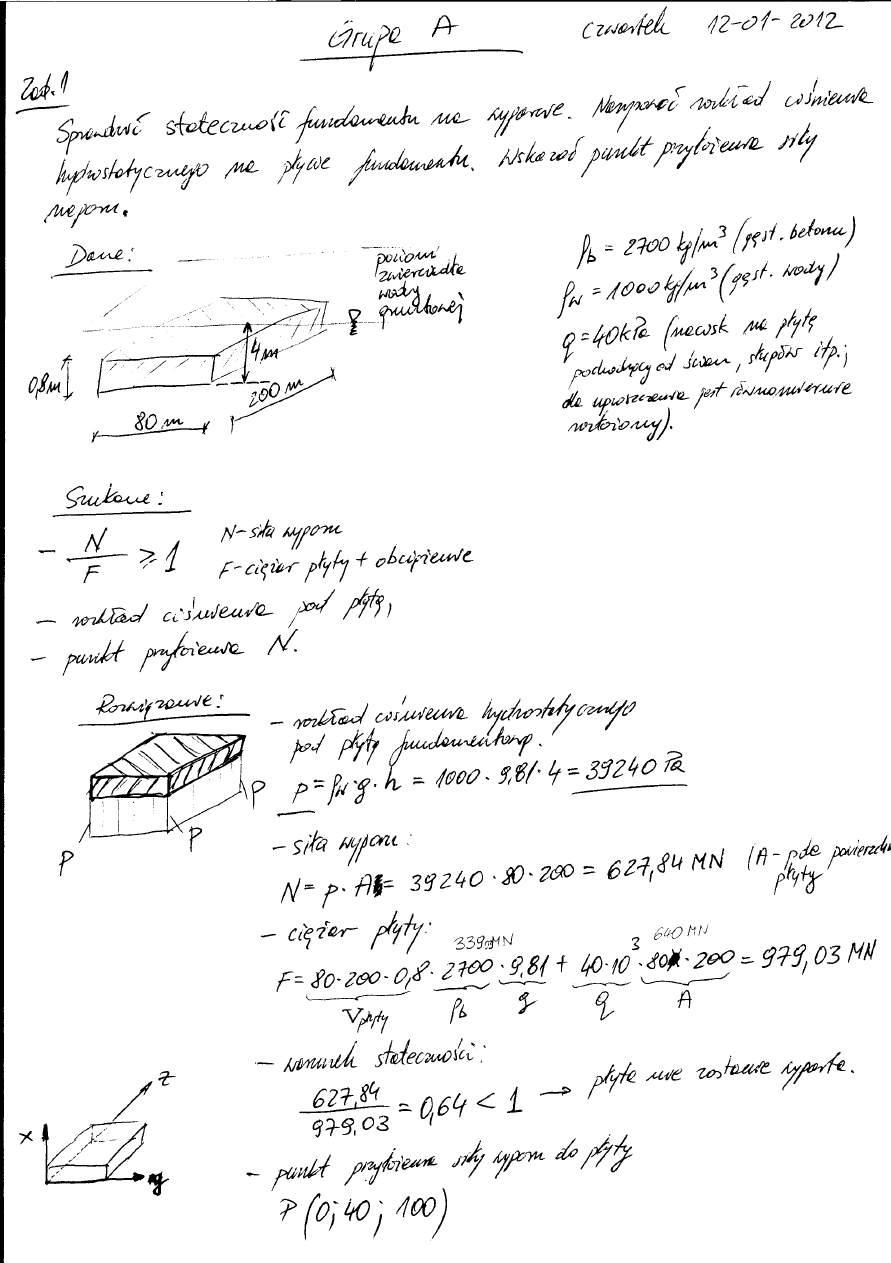 Grupa A czwartek 12-01-2012
Zad.1
Sprawdzić stateczność fundamentu na wyparcie. Narysować rozkład ciśnienia
hydrostatycznego na płycie fundamentu. Wskazać punkt przyłożenia siły
naporu.
Dane:
poziom
zwierciadła
wody
gruntowej
4m
0,8m
200 m
80 m
ρb = 2700 kg/m³ (gęst. betonu)
ρw = 1000 kg/m³ (gęst. wody)
q = 40kPa (nacisk na płytę
pochodzący od ścian, słupów itp.;
dla uproszczenia jest równomiernie
rozłożony).
Szukane:
- N/F ≥ 1 N-siła wyporu
F-ciężar płyty + obciążenie
- rozkład ciśnienia pod płytą,
- punkt przyłożenia N.
Rozwiązanie:
- rozkład ciśnienia hydrostatycznego
pod płytą fundamentową.
p = ρw·g·h = 1000·9,81·4 = 39240 Pa
P P P
- siła wyporu:
N = p·A = 39240·80·200 = 627,84 MN (A - pole powierzchni
płyty
- ciężar płyty:
339MN 640 MN
F = 80·200·0,8·2700·9,81 + 40·10³·80·200 = 979,03 MN
Vpłyty ρb g q A
- warunek stateczności:
627,84/979,03 = 0,64 < 1 → płyta nie zostanie wyparta.
z
x
y
- punkt przyłożenia siły wyporu do płyty
P (0; 40; 100)